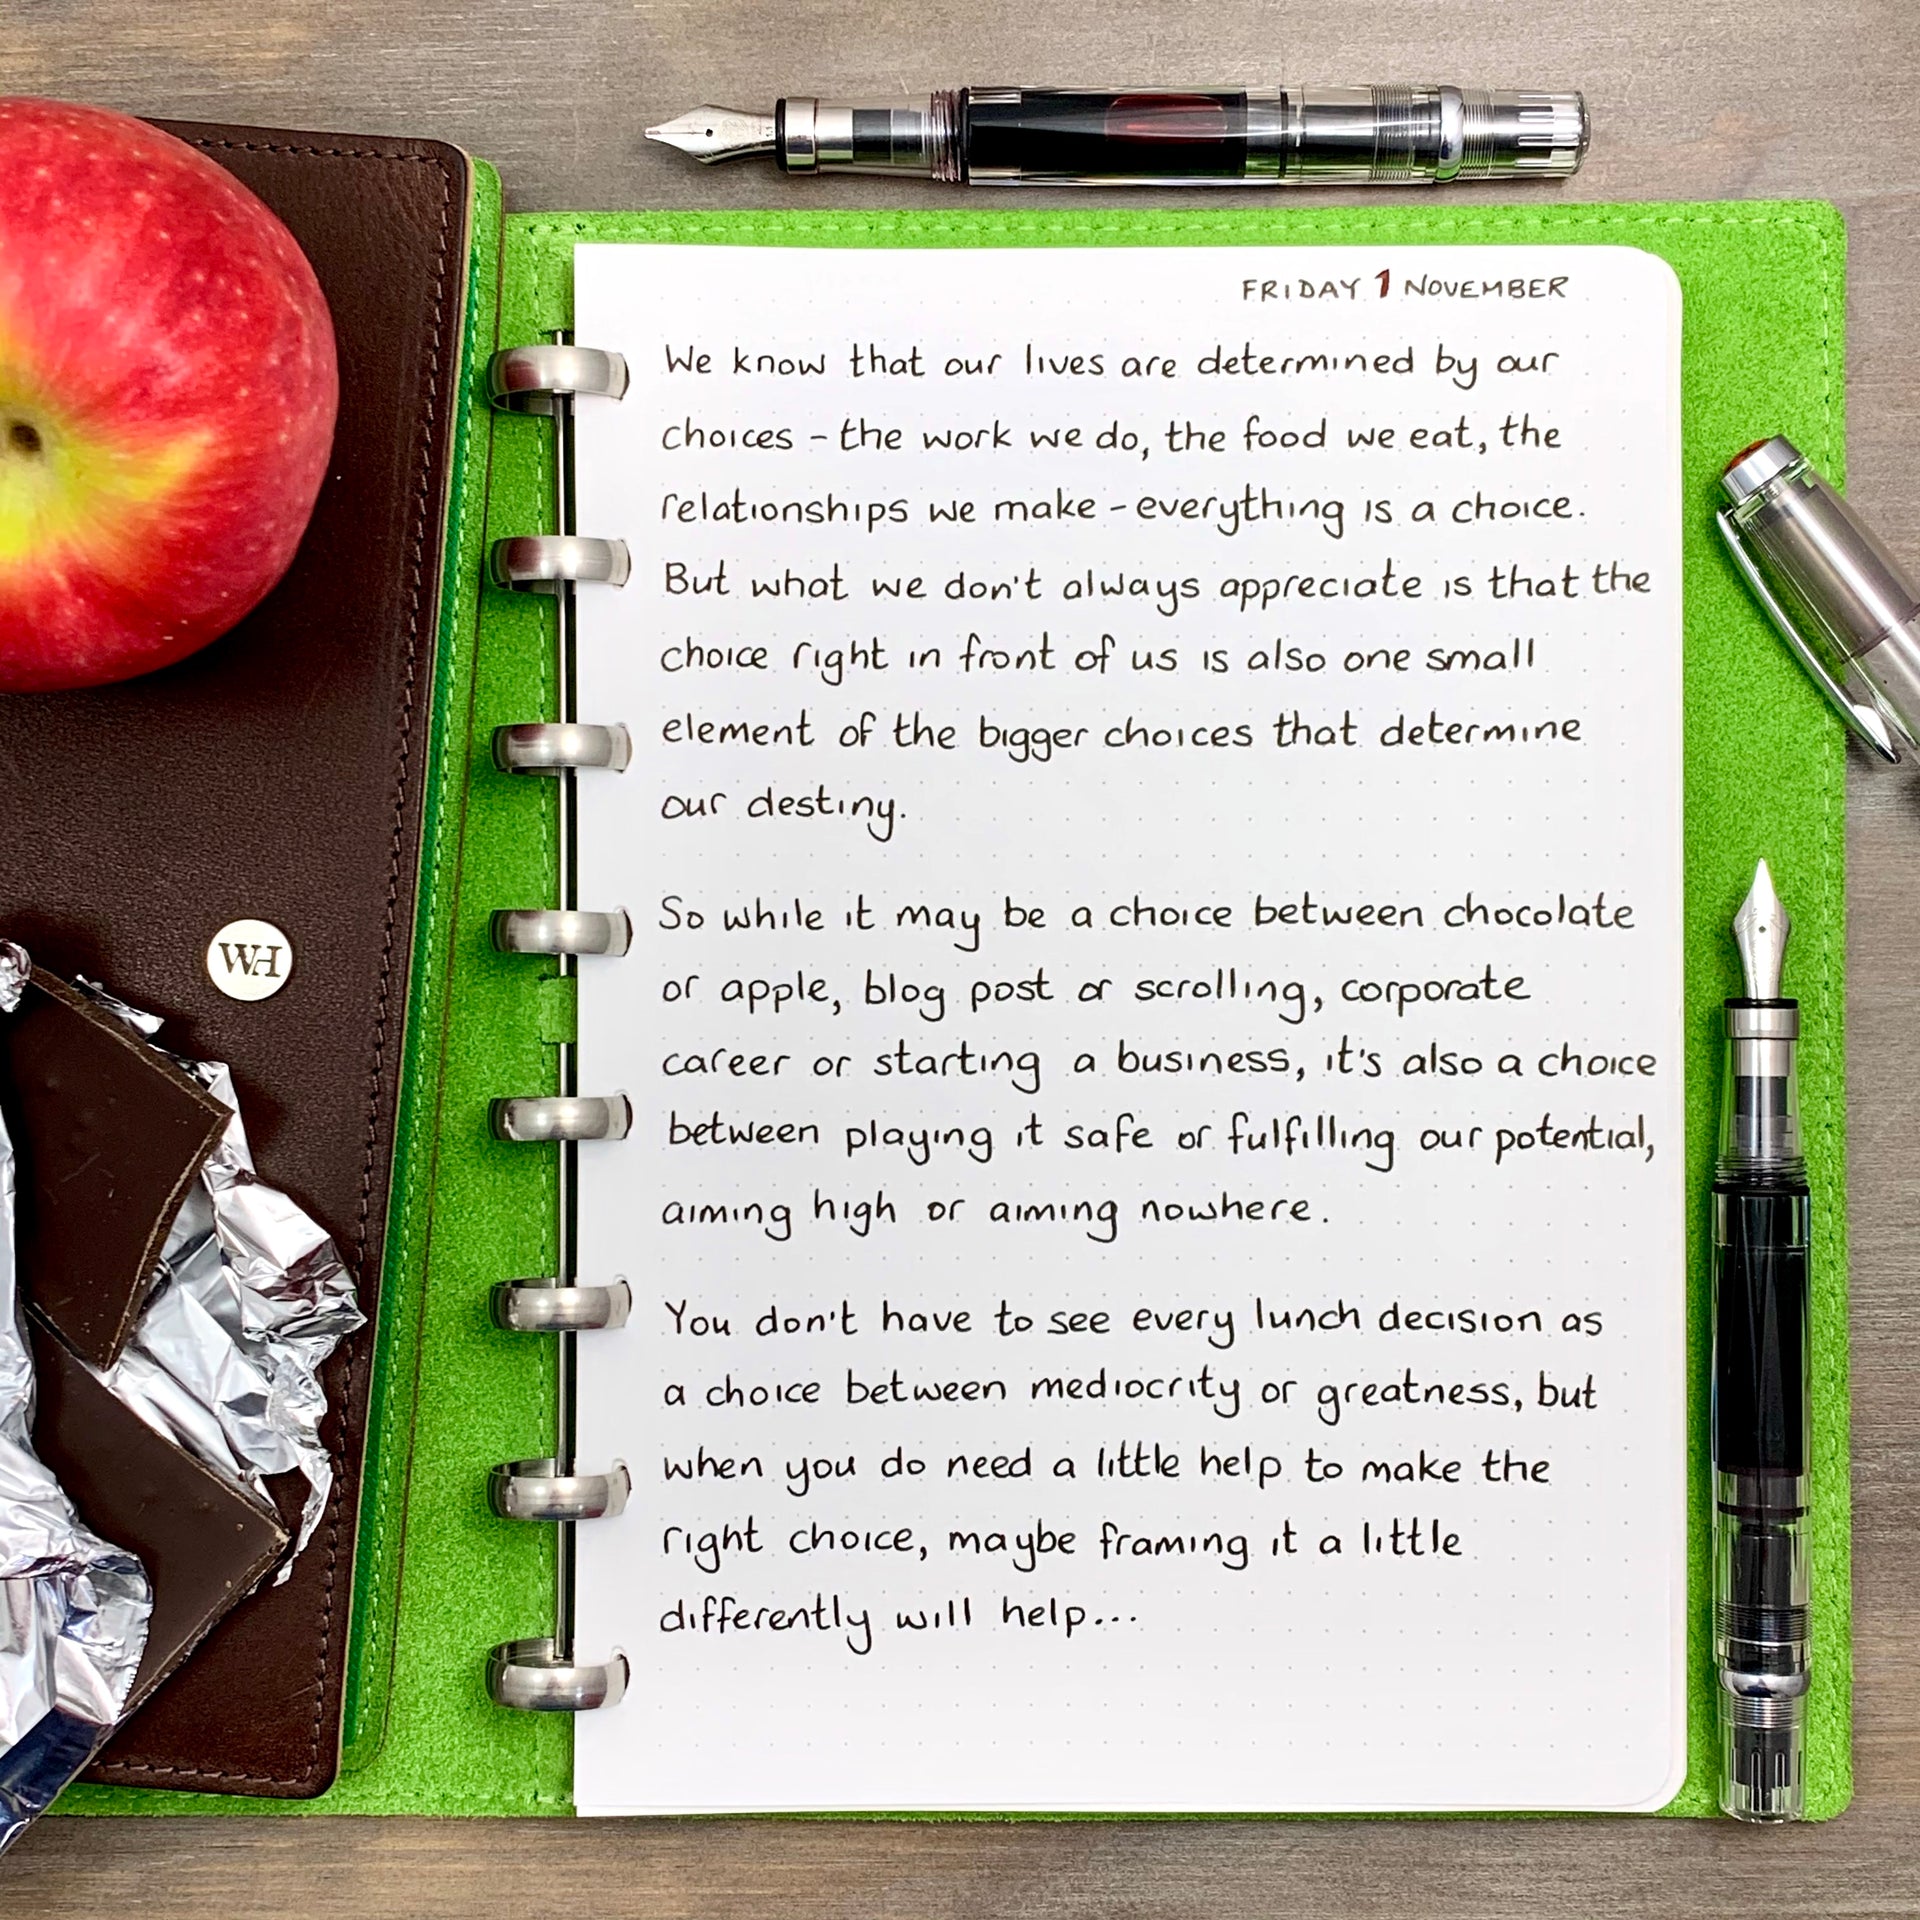 FRIDAY 1 NOVEMBER
We know that our lives are determined by our
choices - the work we do, the food we eat, the
relationships we make - everything is a choice.
But what we don't always appreciate is that the
choice right in front of us is also one small
element of the bigger choices that determine
our destiny.
So while it may be a choice between chocolate
or apple, blog post or scrolling, corporate
career or starting a business, it's also a choice
between playing it safe or fulfilling our potential,
aiming high or aiming nowhere.
You don't have to see every lunch decision as
a choice between mediocrity or greatness, but
when you do need a little help to make the
right choice, maybe framing it a little
differently will help...
WH